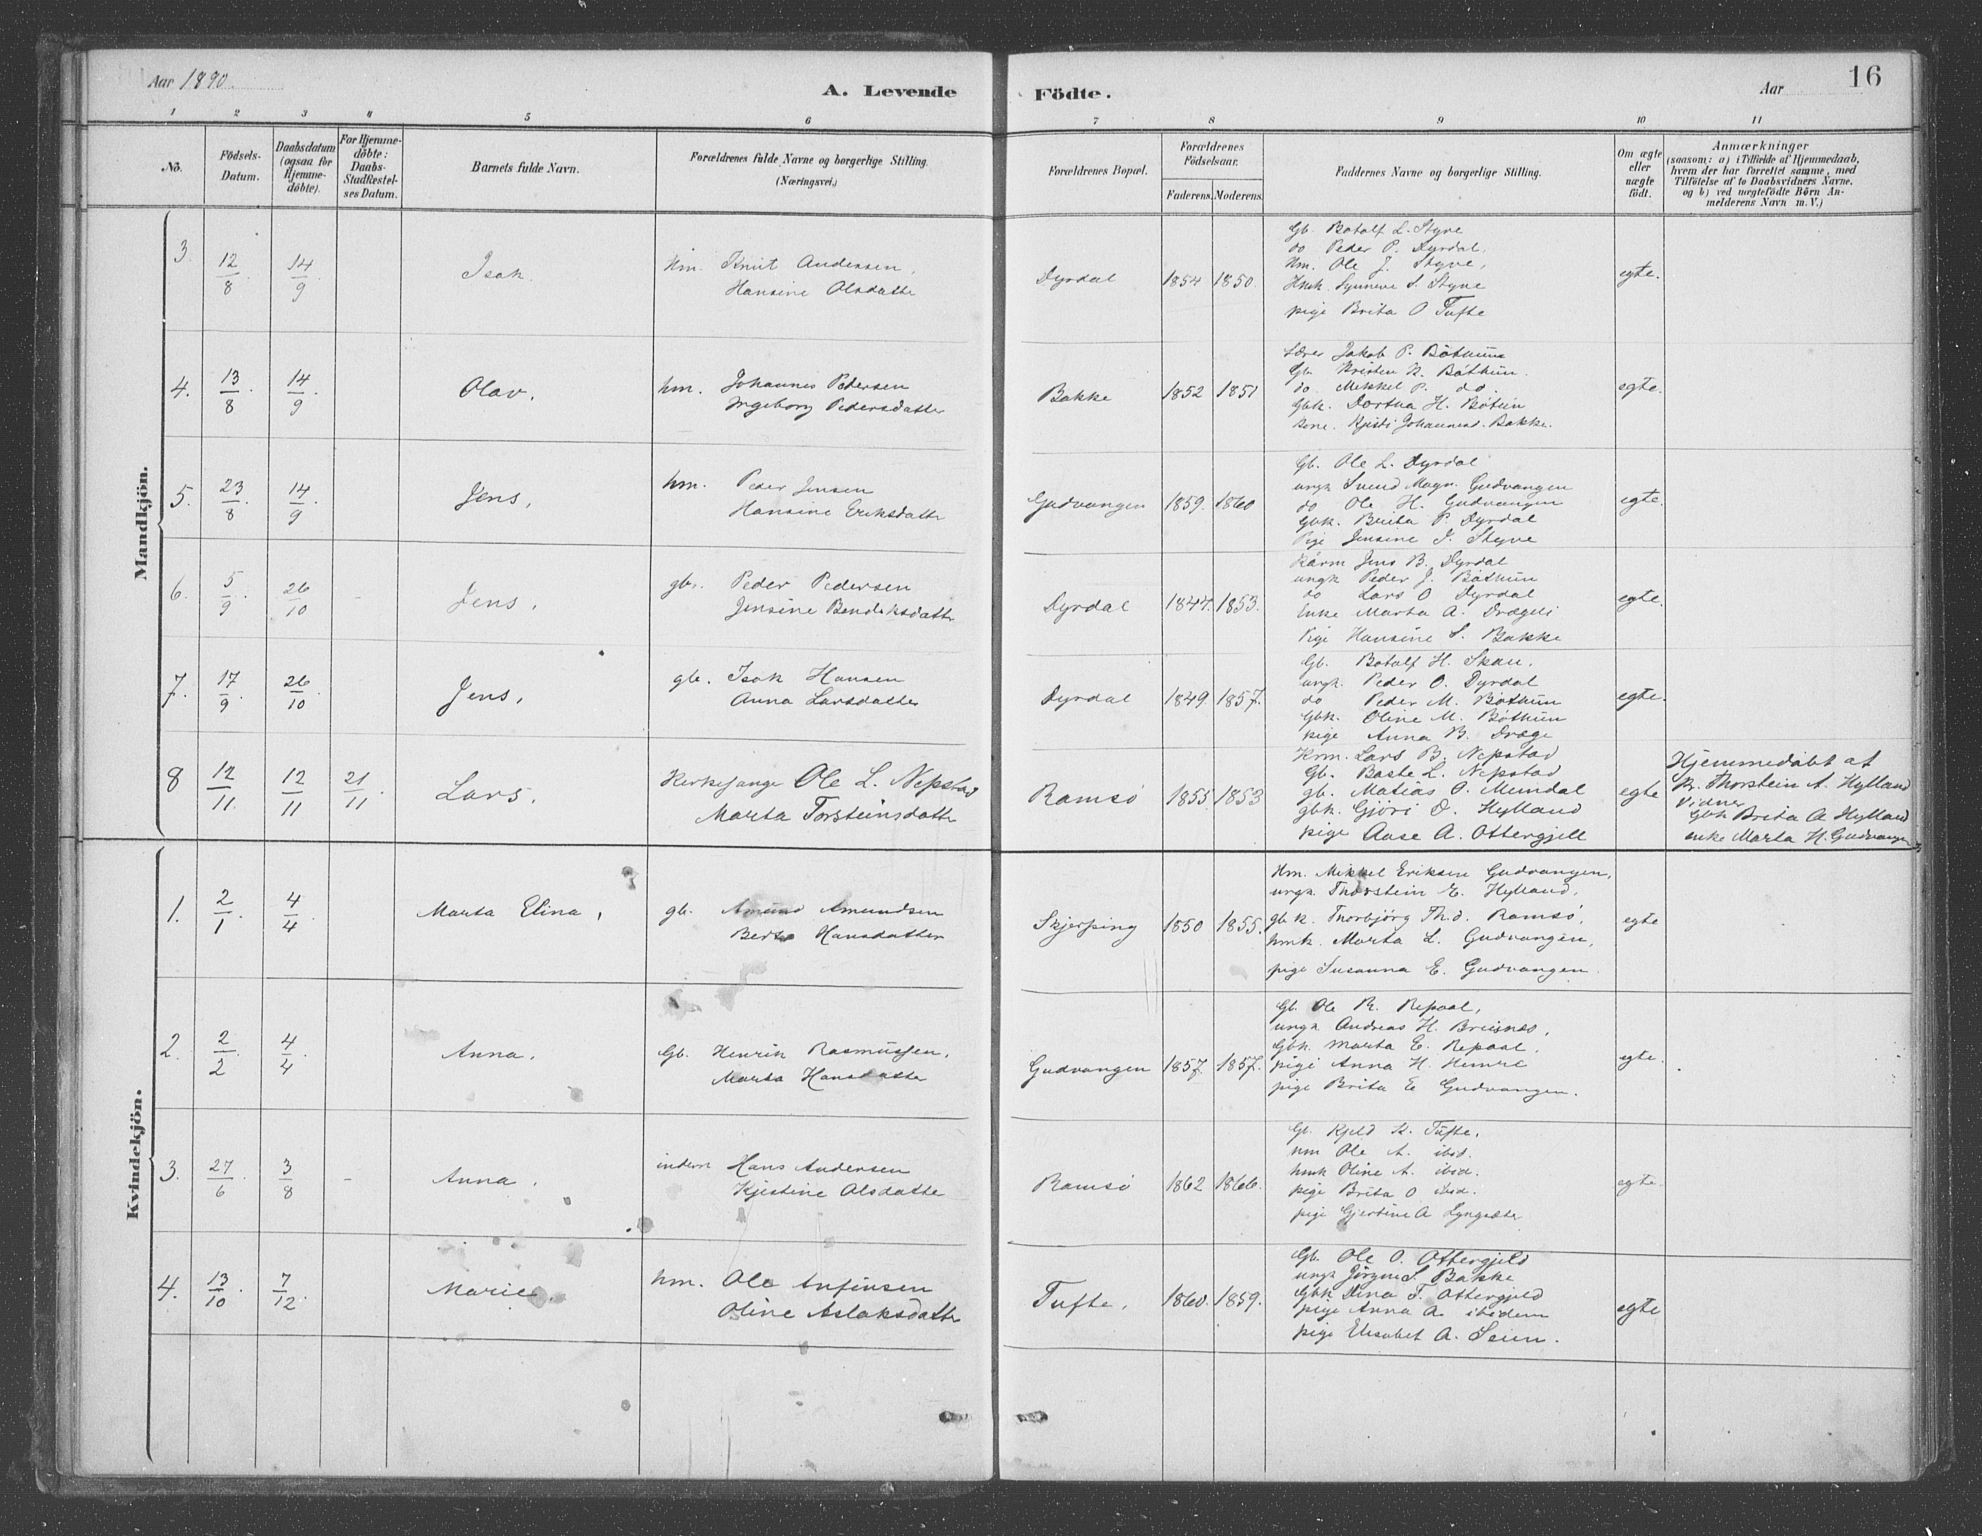 Aar 1890.
A. Levende
Födte.
Aar
16
1 2 3 4 5 6 7 8 9 10 11
No.
Födsels-
Datum.
Daabsdatum
(ogsaa for
Hjemme-
döbte).
For Hjemme-
döbte:
Daabs-
Stadfestel-
ses Datum.
Barnets fulde Navn.
Forældrenes fulde Navne og borgerlige Stilling.
(Næringsvei.)
Forældrenes Bopæl.
Forældrenes
Födselsaar.
Faderens. Moderens.
Faddernes Navne og borgerlige Stilling.
Om ægte
eller
uægte
födt.
Anmærkninger
(saasom: a) i Tilfælde af Hjemmedaab,
hvem der har forrettet samme, med
Tilföielse af to Daabsvidners Navne,
og b) ved uegtefödte Börn An-
melderens Navn m. V.)
Mandkjön.
3. 12/8 14/9 Isak. Hm. Knut Andersen,
Hansine Olsdatter
Dyrdal 1854 1850.
Gb. Botolf L. Styve
do Peder P. Dyrdal,
Hm. Ole J. Styve,
Hmk. Synneve S. Styve
pige Brita O Tufte
egte.
4. 13/8. 14/9. Olav. hm. Johannes Pedersen
Ingeborg Pedersdatter
Bakke 1852 1851
Lærer Jakob P. Bøthun
Gb. Kristen K. Bøthun.
do. Mikkel P. do.
Gbk. Dortua H. Bøtun
Kone. Kjisti Johannesd. Bakke.
egte.
5. 23/8 14/9. Jens, hm. Peder Jensen
Hansine Eriksdatter
Gudvangen 1859. 1860
Gb. Ole L. Dyrdal
ungk Svend Magn. Gudvangen
do Ole H. Gudvangen
Gbk. Brita P. Dyrdal
Pige Jensine J. Styve
egte.
6. 5/9. 26/10 - Jens, gb. Peder Pedersen
Jensine Bendiksdatter
Dyrdal 1847. 1853.
Kårm Jens B. Dyrdal
ungk Peder J. Bøthun
do Lars O Dyrdal
Enke Marta A. Drægeli
Pige Hansine S. Bakke
egte.
7. 17/9. 26/10. Jens, gb. Isak Hansen
Anna Larsdatter
Dyrdal 1849. 1857.
Gb. Botolf H. Skau,
ungk. Peder O. Dyrdal
do Peder M. Bøthun
Gbk. Oline M. Bøthun
pige Anna B. Dræge
egte.
8 12/11. 12/11 21/11. Lars. Kirkesanger Ole L. Nepstad
Marta Torsteinsdatter
Ramsö 1855 1853
Krm. Lars B. Nepstad
Gb. Baste L. Nepstad
gb. Matias O. Mundal
gbk. Gjöri O. Hylland
pige Aase A. Ottergjell
egte
Hjemmedøbt af
Thorstein A. Hylland
Vidner
Gbk Brita A Hylland
enke Marta H. Gudvangen
Kvindekjön.
1. 2/1 4/4. Marta Elina, gb. Amund Amundsen
Hansdatter
Skjerping 1850 1855.
Hm. Mikkel Eriksen Gudvangen,
ungk. Thorstein E. Hylland,
gbk. Thorbjörg Th.d. Ramsö,
hmk. Marta L. Gudvangen,
pige Susanna E. Gudvangen.
egte
2. 2/2 4/4 Anna. Gb. Henrik Rasmussen,
Marta Hansdatter
Gudvangen 1857. 1857.
Gb. Ole R. Repaal,
ungk Andreas H. Breisnæs,
Gbk. Marta E. Repaal,
pige Anna H. Himre
pige Brita E Gudvangen.
egte.
3. 27/6 3/8 - Anna. inderst Hans Andersen
Kjestine Olsdatter
Ramsö 1862 1866.
Gb. Kjeld K. Tufte,
Hm Ole A. ibid.
hmk Oline A. ibid.
pige Brita O ibid.
pige Gjertine A Lyngsæter
egte.
4. 13/10 7/12. Marie. hm. Ole Anfinsen
Oline Aslaksdatter
Tufte. 1860. 1859.
Gb. Ole O. Ottergjeld
ungk Jörgen S. Bakke
Gbk Dina T. Ottergjeld
pige Anna A. ibidem
pige Elisabet A. Seim.
egte